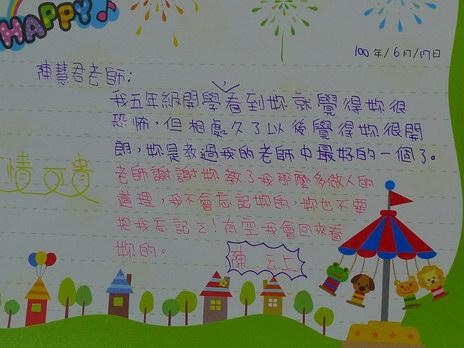 HAPPY
100年/6月/17日
陳慧君老師:
我五年級開學看到妳就覺得妳很
恐怖,但相處久了以後覺得妳很開
朗,妳是教過我的老師中最好的一個了。
老師謝謝妳教了我那麼多做人的
道理,我不會忘記妳的,妳也不要
把我忘記了!有空我會回來看
妳的。